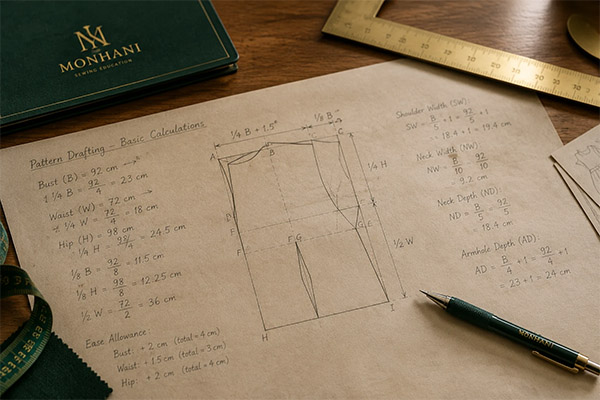 MONHANI
SEWING EDUCATION
Pattern Drafting – Basic Calculations
Bust (B) = 92 cm →
1/4 B = 92/4 = 23 cm
Waist (W) = 72 cm →
1/4 W = 72/4 = 18 cm
Hip (H) = 98 cm
1/4 H = 98/4 = 24.5 cm
1/8 B = 92/8 = 11.5 cm
1/8 H = 98/8 = 12.25 cm
1/2 W = 72/2 = 36 cm
Ease Allowance:
Bust: + 2 cm (total = 4 cm)
Waist: + 1.5 cm (total = 3 cm)
Hip: + 2 cm (total = 4 cm)
1/4 B + 1.5"
1/8 B
A
B
C
1/4 H
F
E
F G
1/2 W
H
I
Shoulder Width (SW):
SW = B/5 + 1 = 92/5 + 1
= 18.4 + 1 = 19.4 cm
Neck Width (NW):
NW = B/10 = 92/10
= 9.2 cm
Neck Depth (ND):
ND = B/5 = 92/5
= 18.4 cm
Armhole Depth (AD):
AD = B/4 + 1 = 92/4 + 1
= 23 + 1 = 24 cm
MONHANI